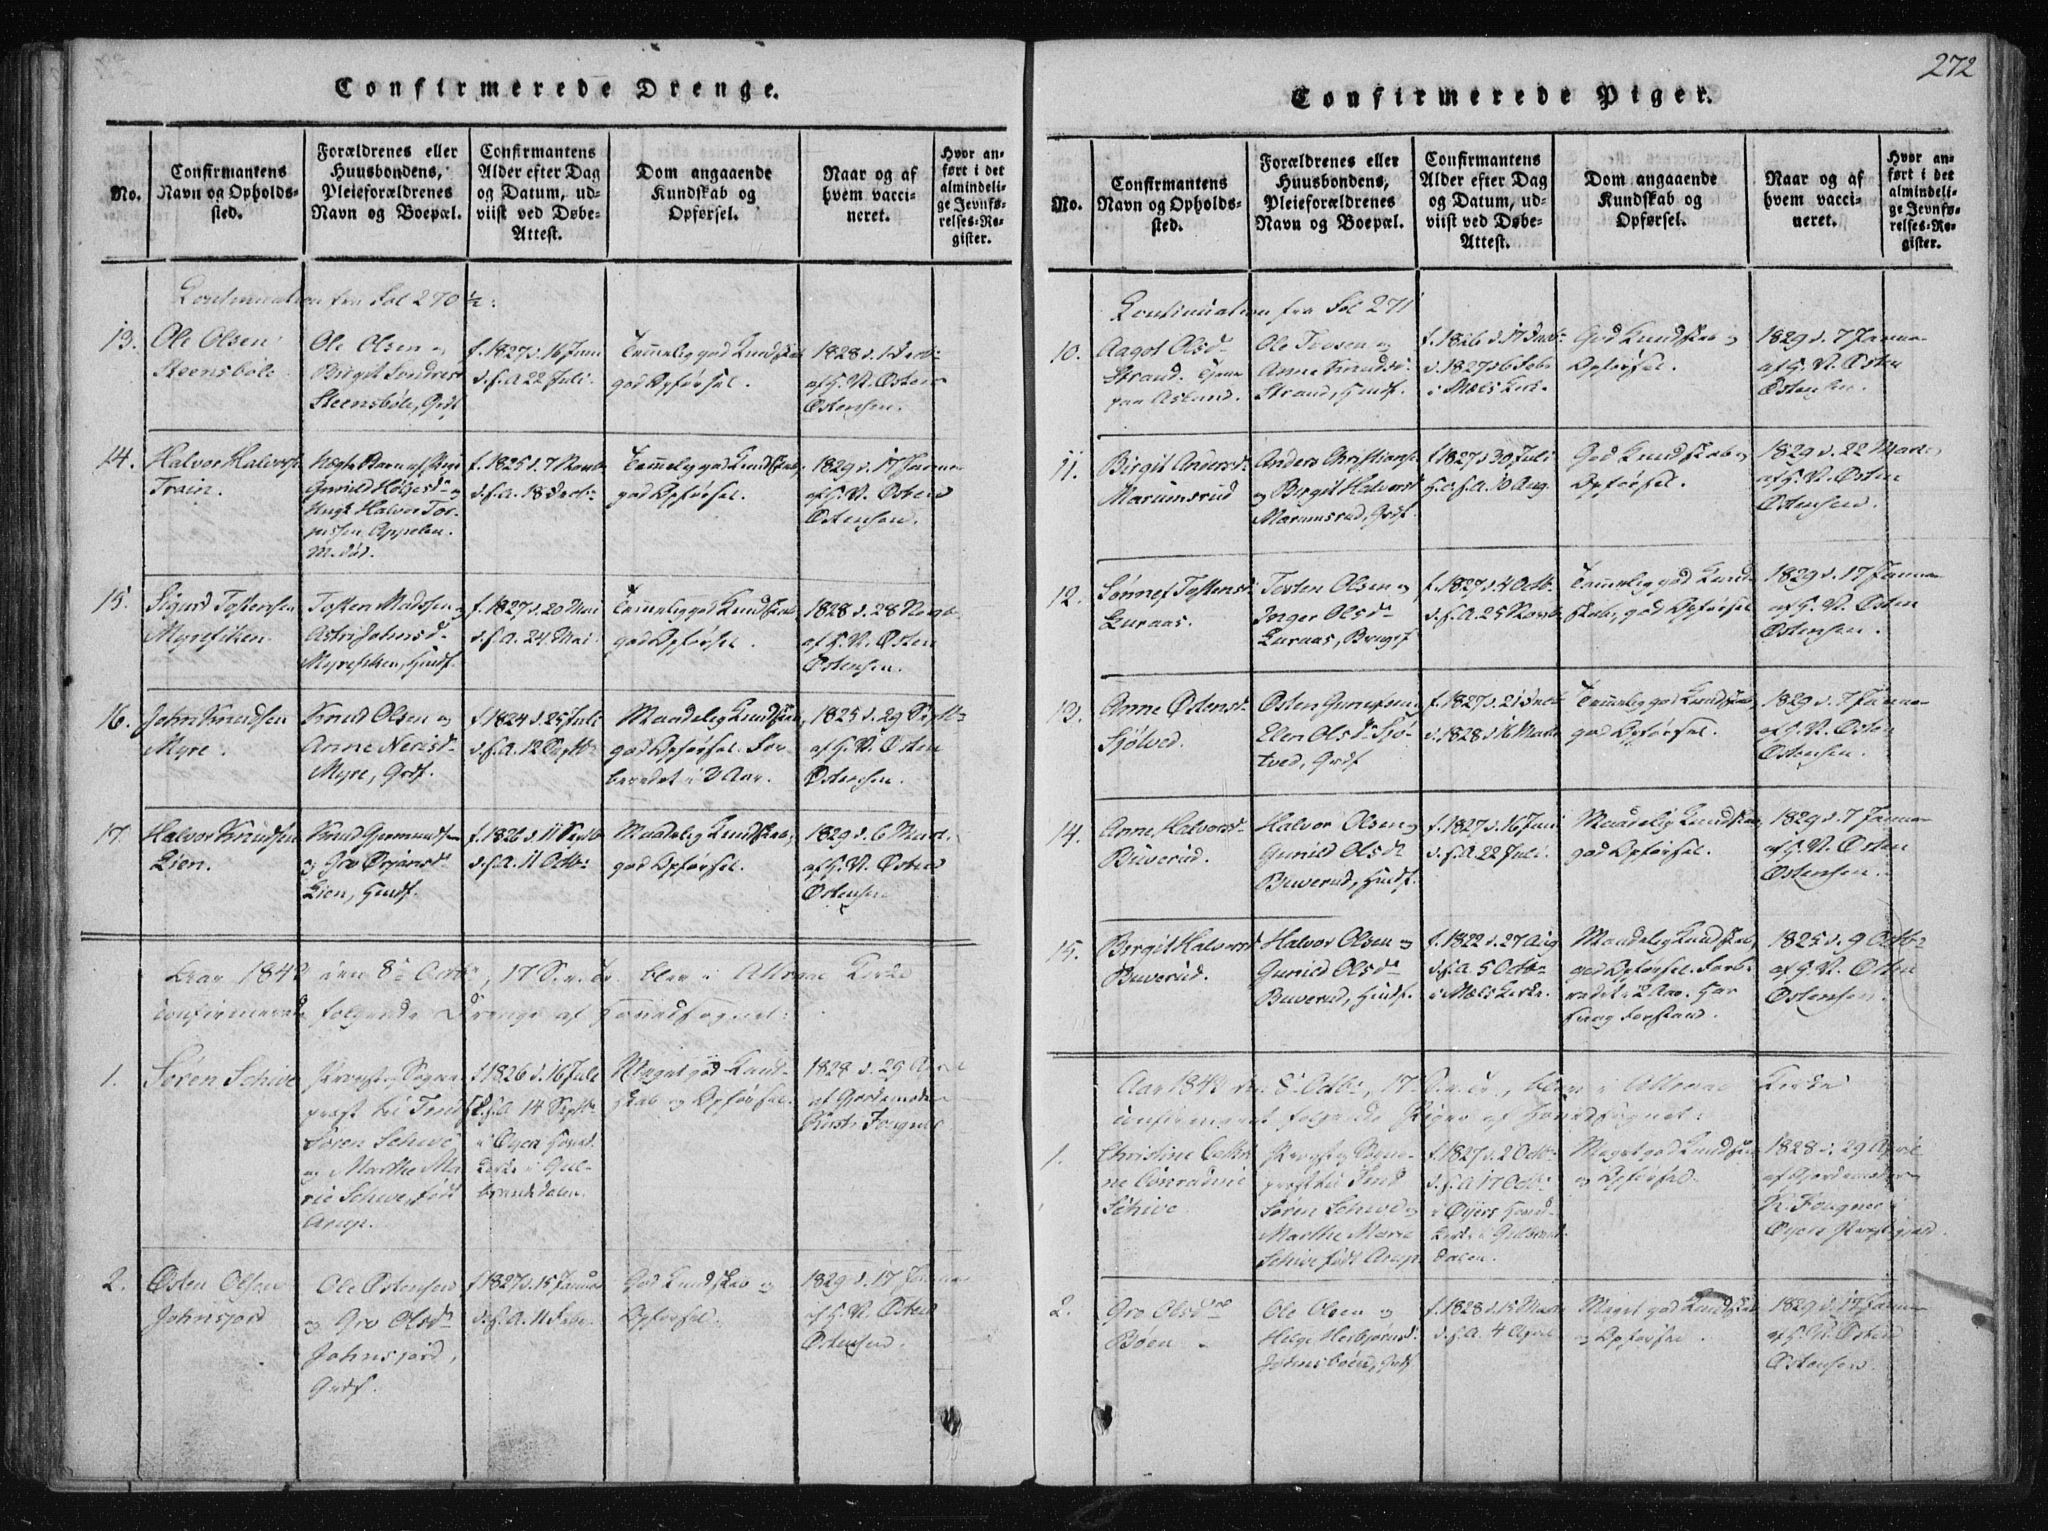 272
Confirmerede Drenge.
No.
Confirmantens
Navn og Opholds-
sted.
Forældrenes eller
Huusbondens,
Pleieforældrenes
Navn og Boepæl.
Confirmantens
Alder efter Dag
og Datum, ud-
viist ved Døbe-
Attest.
Dom angaaende
Kundskab og
Opførsel.
Naar og af
hvem vacci-
neret.
Hvor an-
ført i det
almindeli-
ge Jevnfø-
relses-Re-
gister.
Continuation fra Fol 270 ½:
13.
Ole Olsen
Steensböle
Ole Olsen og
Birgit
Steensböle, Grdf
f. 1827 d. 16 Juni
d. s. A. 22 Juli.
Temmelig god Kundskab
god Opførsel.
1828 d. 1 Decb
af G. N. Østen
Østensen.
14.
Halvor Halvors
Train.
Uægte Barn af Pige
Gunild Helgesd og
Ungk Halvor Tor-
Appelen.
f. 1825 d. 7 Novb
d. s. A. 18 Decb
Temmelig god Kundskab,
god Opførsel.
1829 d. 17 Janua
af G. N. Østen
Østensen.
15.
Sigurd Tostensen
Myrefiken.
Tosten Madssen og
Astri Johnsd
Myrefiken, Huusf.
f. 1827 d. 20 Mai
d. s. A. 24 Mai.
Temmelig god Kundskab,
god Opførsel.
1828 d. 28 Novb
af G. N. Østen
Østensen.
16.
John Knudsen
Myre.
Knud Olsen og
Anne Nerisd
Myre, Grdf.
f. 1824 d. 25 Juli
d. s. A. 12 Septb
Maadelig Kundskab
god Opførsel. For-
beredet i 3 Aar.
1825 d. 29 Septb
af G. N. Østen
Østensen.
17.
Halvor Knudsen
Lien.
Knud Germundsen
og Gro
Lien, Huusf.
f. 1826 d. 11 Septb
d. s. A. 11 Octb
Maadelig Kundskab,
god Opførsel.
1829 d. 6 Mart.
af G. N. Østen
Østensen
Aar 1842 den 8de Octbr, 17 S. e. Tr. blev i Attraae Kirke
confirmerede følgende Drenge af Hovedsognet:
1.
Søren Schive
Provst og Sogne
præst til Tind
Søren Schive
og Marthe Ma
rie Schive, født
Arup.
f. 1826 d. 16 Juli
d. s. A. 14 Septb
i Øyer Hoved
kirke i Gul-
brandsdalen.
Meget god Kund-
skab og Opførsel.
1828 d. 29 April
af Gjordemoder
Fougner
2.
Østen Olsen
Johnsjord
Ole Østensen
og Gro Olsd
Johnsjord,
Grdf.
f. 1827 d. 15 Januar
d. s. A. 11 Febr
God Kundskab og
Opførsel.
1829 d. 17 Janua
af G. N. Østen
Østensen.
Confirmerede Piger.
No.
Confirmantens
Navn og Opholds-
sted.
Forældrenes eller
Huusbondens,
Pleieforældrenes
Navn og Boepæl.
Confirmantens
Alder efter Dag
og Datum, ud-
viist ved Døbe-
Attest.
Dom angaaende
Kundskab og
Opførsel.
Naar og af
hvem vacci-
neret.
Hvor an-
ført i det
almindeli-
ge Jevnfø-
relses-Re-
gister.
Continuation fra Fol 271
10.
Aagot Olsd
Strand. Tjener
paa Asland.
Ole Tovsen og
Anne Knudsd
Strand, Huusf.
f. 1826 d. 17 Decb
d. 1827 d. 6 Febr
i Mæls Kirk.
God Kundskab og
Opførsel.
1829 d. 7 Janua
af G. N. Østen
Østensen.
11.
Birgit Andersd
Marumsrud
Anders Christians
og Birgit Halvorsd
Marumsrud, Grdf.
f. 1827 d. 30 Juli
d. s. A. 10 Aug.
God Kundskab og
Opførsel.
1829 d. 22 Marts
af G. N. Østen
Østensen.
12.
Sønnef Tostensd
Luraas.
Tosten Olsen og
Inger Olsd
Luraas, Brugsf
f. 1827 d. 4 Octb
d. s. A. 25 Novb
Temmelig god Kund
skab, god Opførsel
1829 d. 17 Janua
af G. N. Østen
Østensen.
13.
Anne Østensd
Sjøtved.
Østen
Ellen Olsd Sjø-
tved, Grdf
f. 1827 d. 21 Decb
d. 1828 d. 16 Marts
Temmelig god Kundskab
god Opførsel.
1829 d. 7 Janua
af G. N. Østen
Østensen.
14.
Anne Halvorsd
Buverud.
Halvor Olsen og
Gunild Olsd
Buverud, Huusf.
f. 1827 d. 16 Juni
d. s. A. 22 Juli.
Maadelig Kundskab
god Opførsel.
1829 d. 7 Janua
af G. N. Østen
Østensen.
15.
Birgit Halvorsd
Buverud.
Halvor Olsen og
Gunild Olsd
Buverud, Huusf.
f. 1822 d. 27 Aug
d. s. A. 5 Octb
i Mæls Kirke.
Maadelig Kundskab,
god Opførsel. Forbe
redet i 2 Aar. Har
svag Forstand.
1825 d. 9 Octb
af G. N. Østen
Østensen.
Aar 1842 den 8 Octb, 17 S. e. Tr., blev i Attraae Kirke
confirmeret følgende Piger af Hovedsognet:
1.
Christine Cathri
ne Conradine
Schive
Provst og Sogne-
præst til Tind
Søren Schive og
Marthe Marie
Schive født Arup
f. 1827 d. 2 Octb
d. s. A. 17 Octb
i Øyers Hoved-
kirke i Gulbrands
dalen.
Meget god Kundskab
og Opførsel.
1828 d. 29 April
af Gjordemoder
K. Fougner i
Øyers Præstegjæld
2.
Gro Olsd
Bøen
Ole Olsen og
Helge Herbjørnsd
Grdf
f. 1828 d. 15 Marts
d. s. A. 4 April
Meget god Kundskab
og Opførsel.
1829 d. 17 Janua
af G. N. Østen
Østensen.